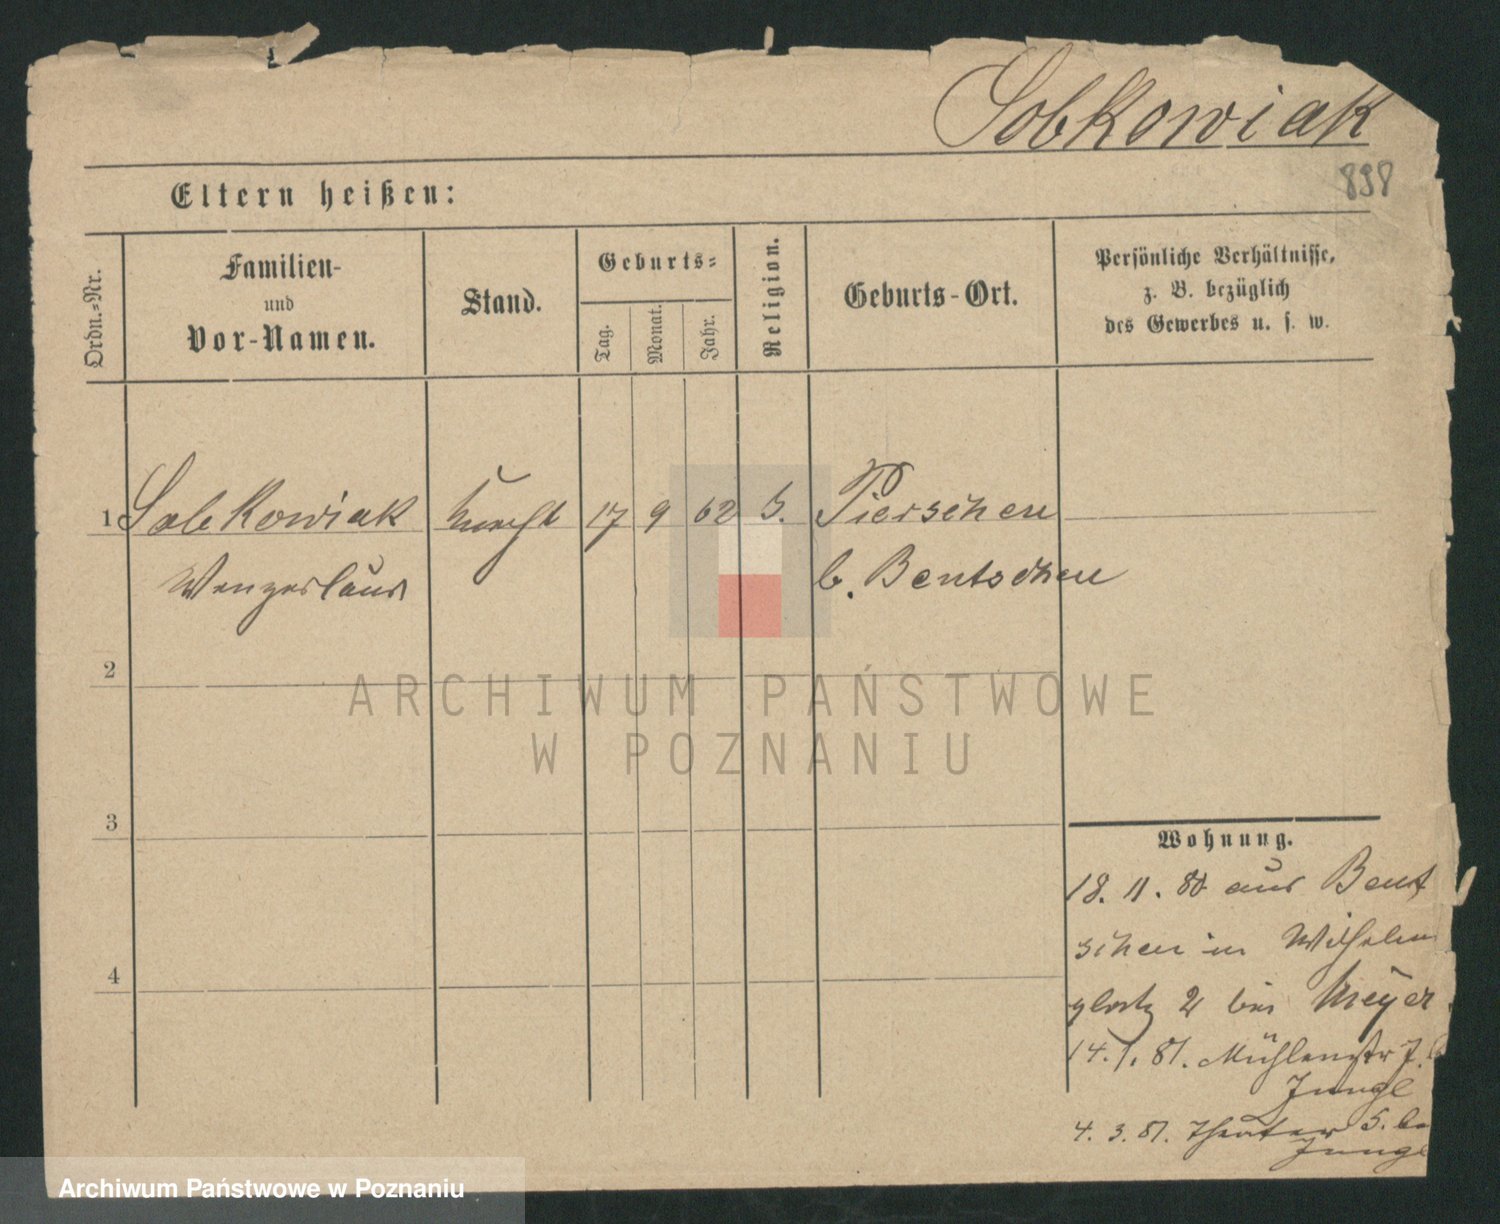 Sobkowiak
898
Eltern heißen:
Ordn.-Nr.
Familien-
und
Vor-Namen.
Stand.
Geburts-
Tag.
Monat.
Jahr.
Religion.
Geburts-Ort.
Persönliche Verhältnisse,
z. B. bezüglich
des Gewerbes u. s. w.
1 Sobkowiak Knecht 17 9 62 Pierschen
Wenzeslaus b. Bentschen
2
ARCHIWUM PAŃSTWOWE
W POZNANIU
3
Wohnung.
18. 11. 80 aus Bent
schen in Wilhelm
platz 2 bei Meyer
4
14. 1. 81. Mühlenstr 7. b
Junge
4. 3. 81. Theater 5. be
Junge
Archiwum Państwowe w Poznaniu